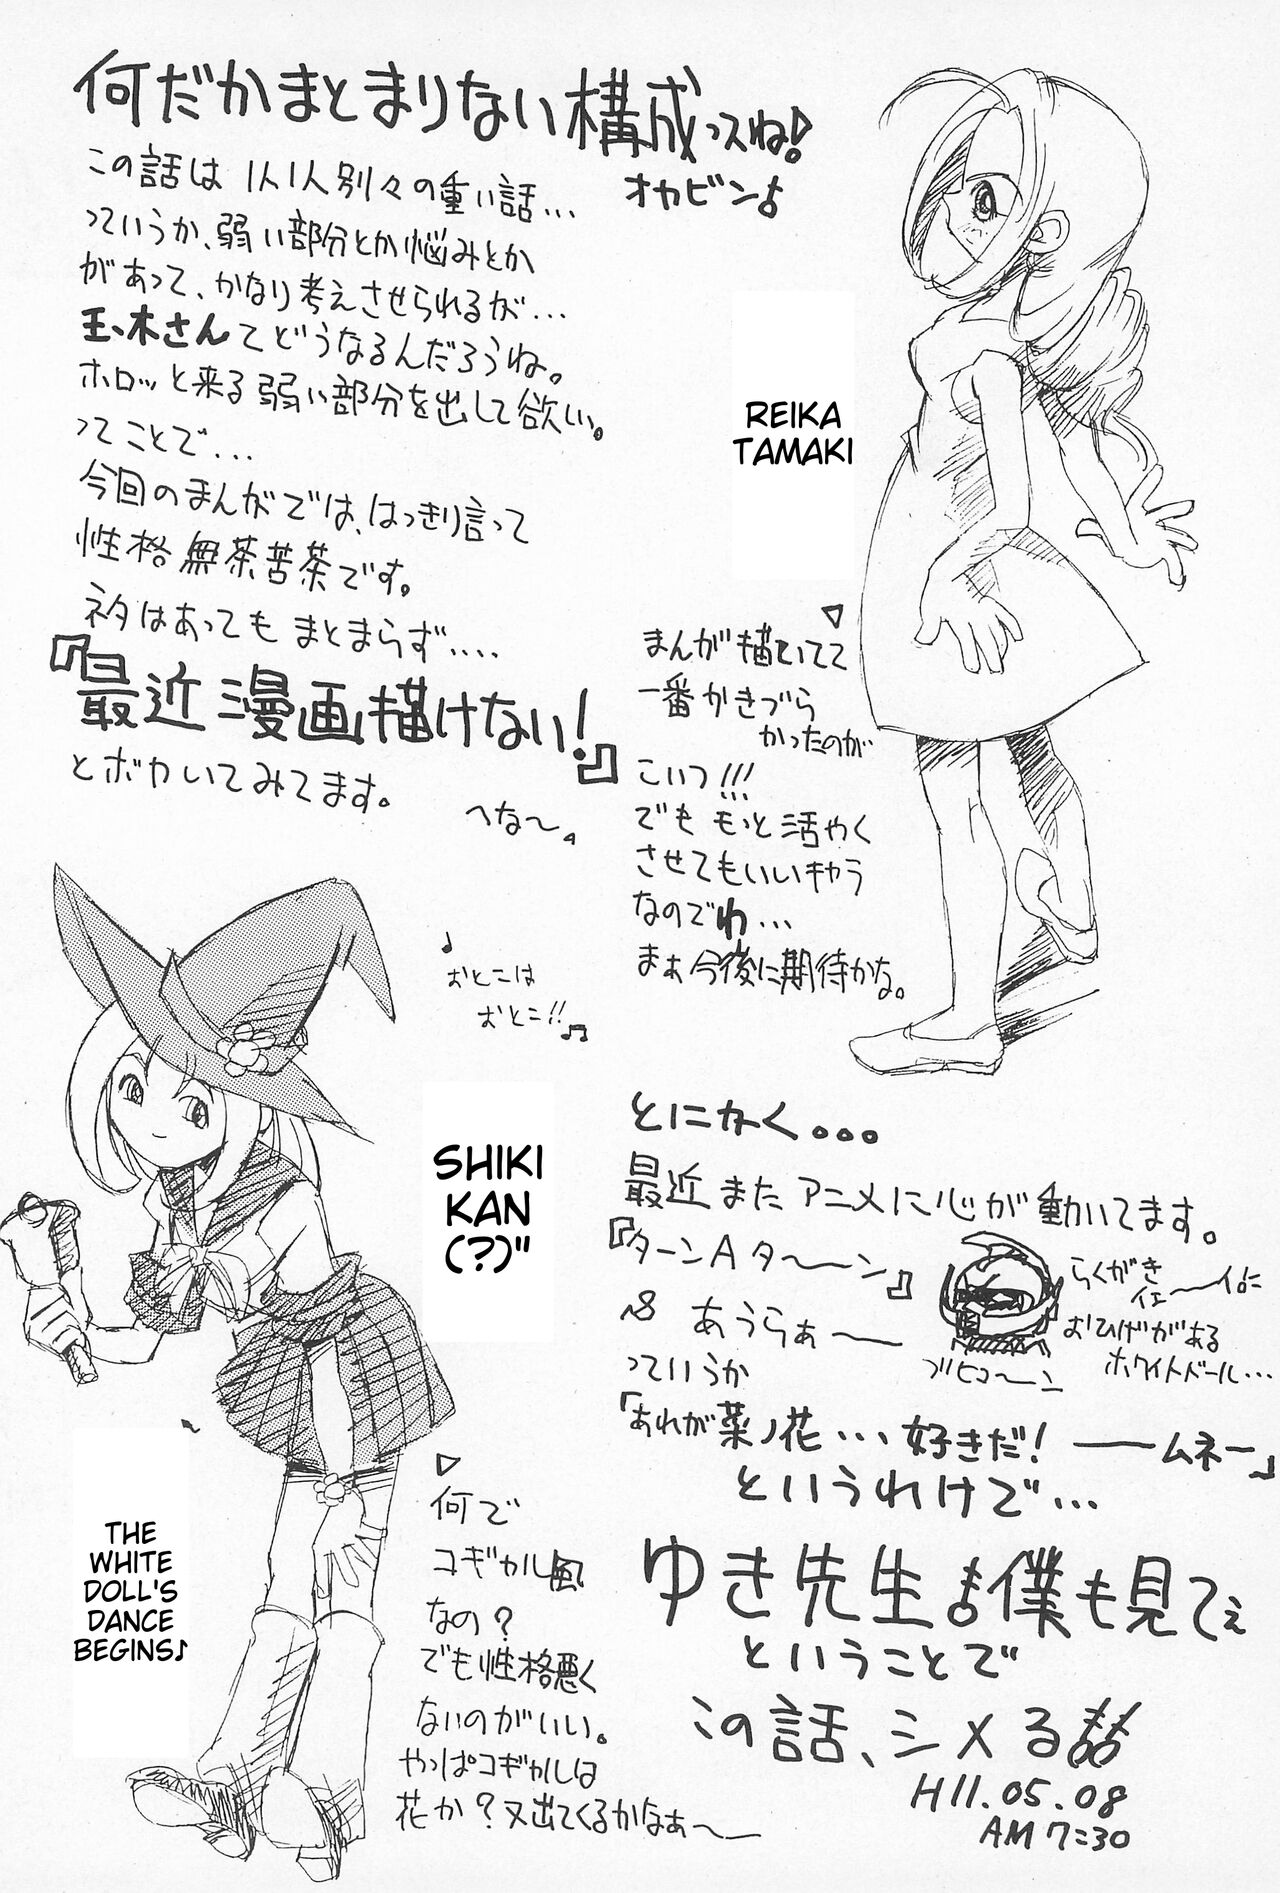 何だかまとまりない構成っスね!
オカビン♪
この話は1人1人別々の重い話...
っていうか、弱い部分とか悩みとか
があって、かなり考えさせられるが...
玉木さんてどうなるんだろうね。
ホロッと来る弱い部分を出して欲しい。
ってことで...
今回のまんがでは、はっきり言って
性格無茶苦茶です。
ネタはあってもまとまらず....
『最近漫画描けない!』
とボカいてみてます。
へな〜。
REIKA
TAMAKI
まんが描いてて
一番かきづら
かったのが
こいつ!!!
でももっと活やく
させてもいいキャラ
なのでわ...
まぁ今後に期待かな。
♪
おとこは
おとこ!!♫
SHIKI
KAN
(?)"
THE
WHITE
DOLL'S
DANCE
BEGINS♪
何で
コギャル風
なの?
でも性格悪く
ないのがいい。
やっぱコギャルは
花か?又出てくるかなぁ〜
とにかく。。。
最近またアニメに心が動いてます。
『ターンAターン』
あうらぁ〜
らくがき
おひげがある
ホワイトドール...
ブヒューン
っていうか
「あれが菜ノ花...好きだ!――ムネー」
というわけで...
ゆき先生も僕も見てぇ
ということで
この話、シメる
H11.05.08
AM 7:30